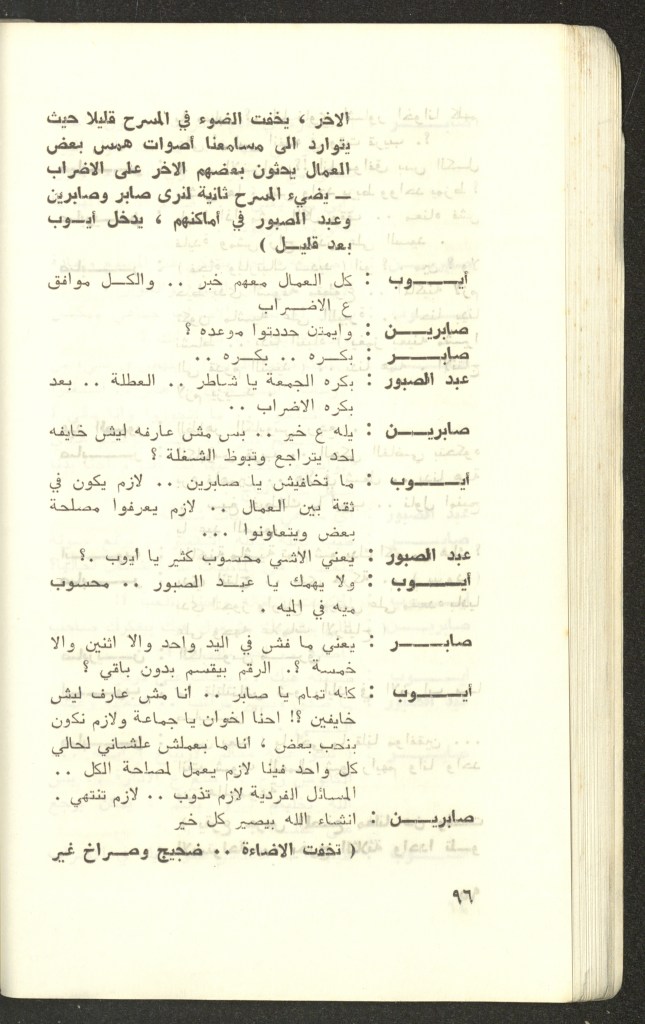 الاخر ، يخفت الضوء في المسرح قليلا حيث
يتوارد الى مسامعنا أصوات همس بعض
العمال يحثون بعضهم الاخر على الاضراب
ــ يضيء المسرح ثانية لنرى صابر وصابرين
وعبد الصبور في أماكنهم ، يدخل أيــوب
بعد قليــل )
أيـــــوب : كل العمال معهم خبر .. والكــل موافق
ع الاضــراب
صابريـــن : وايمتن حددتوا موعده ؟
صابـــــر : بكــره .. بكــره ..
عبد الصبور : بكره الجمعة يا شاطر .. العطلة .. بعد
بكره الاضراب ..
صابريـــن : يله ع خير .. بس مش عارفه ليش خايفه
لحد يتراجع وتبوظ الشغلة ؟
أيـــــوب : ما تخافيش يا صابرين .. لازم يكون في
ثقة بين العمال .. لازم يعرفوا مصلحة
بعض ويتعاونوا ...
عبد الصبور : يعني الاشي محسوب كثير يا ايوب .؟
أيـــــوب : ولا يهمك يا عبــد الصبور .. محسوب
ميه في الميه .
صابـــــر : يعني ما فش في اليد واحد والا اثنين والا
خمسة ؟. الرقم بيقسم بدون باقي ؟
أيـــــوب : كله تمام يا صابر .. انا مش عارف ليش
خايفين ؟! احنا اخوان يا جماعة ولازم نكون
بنحب بعض ، انا ما بعملش علشاني لحالي
كل واحد فينا لازم يعمل لمصلحة الكل ..
المسائل الفردية لازم تذوب .. لازم تنتهي .
صابريـــن : انشاء الله بيصير كل خير
( تخفت الاضاءة .. ضجيج وصــراخ غير
٩٦